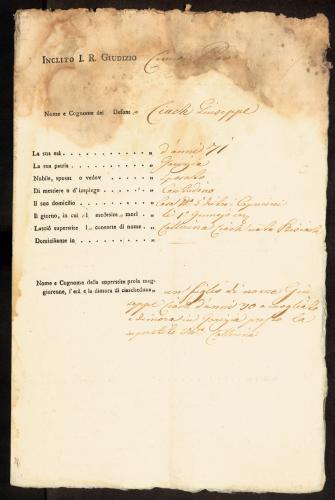 INCLITO I. R. GIUDIZIO
Nome e Cognome del Defunto Ciach Giuseppe
La sua età d'anni 71
La sua patria Gorizia
Nobile, sposo o vedov Sposato
Di mestiere o d'impiego Contadino
Il suo domicilio
Il giorno, in cui l medesim morì li 1° in
Lasciò superstite l consorte di nome Catterina Ciach nata
Domiciliante in
Nome e Cognome della superstite prole mag-
giorenne, l'età e la dimora di ciascheduno un figlio di nome Giu-
seppe Ciach d'anni 30 ammogliato
e dimora in Gorizia presso la
Catterina